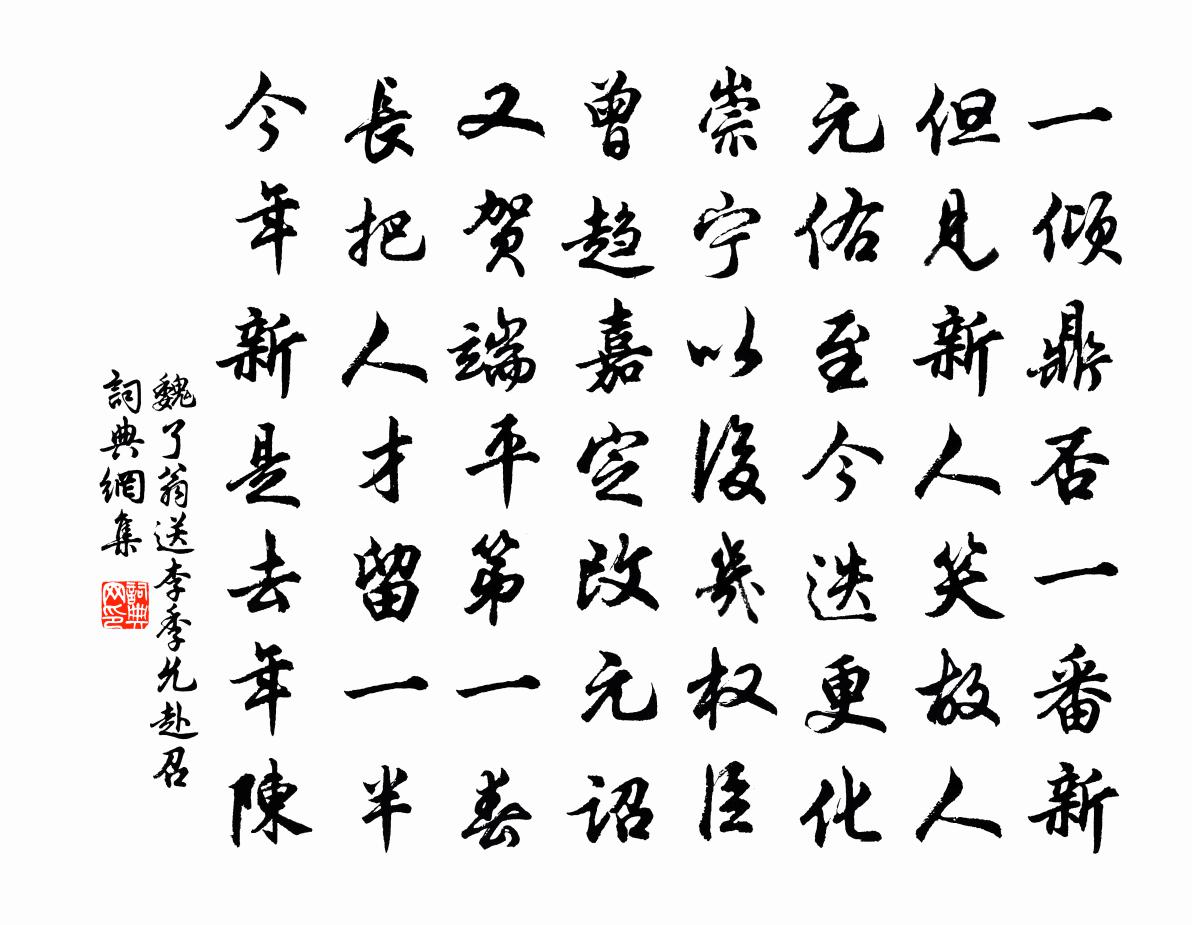 一倾鼎否一番新
但见新人笑故人
元佑至今迭更化
崇宁以後幾权臣
曾趋嘉定改元诏
又贺端平第一春
長把人才留一半
今年新是去年陳
魏了翁送李季允赴召
詞典網集
詞典网印